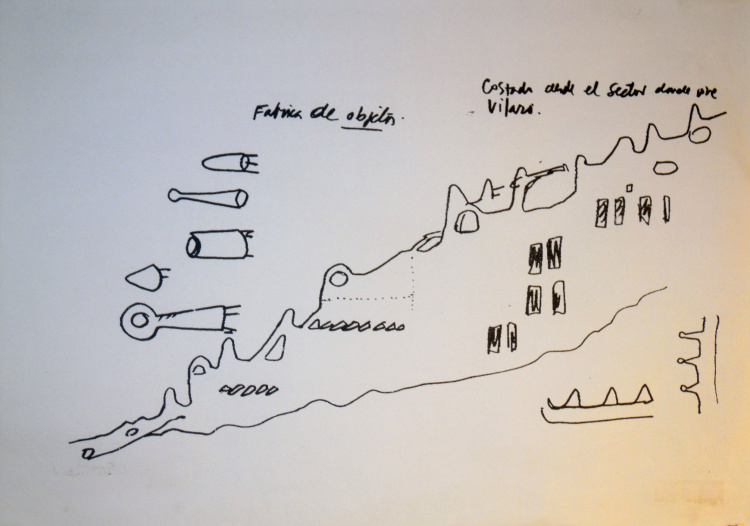 Fabrica de objetos.
Costado desde el sector donde vive
Vilaró.